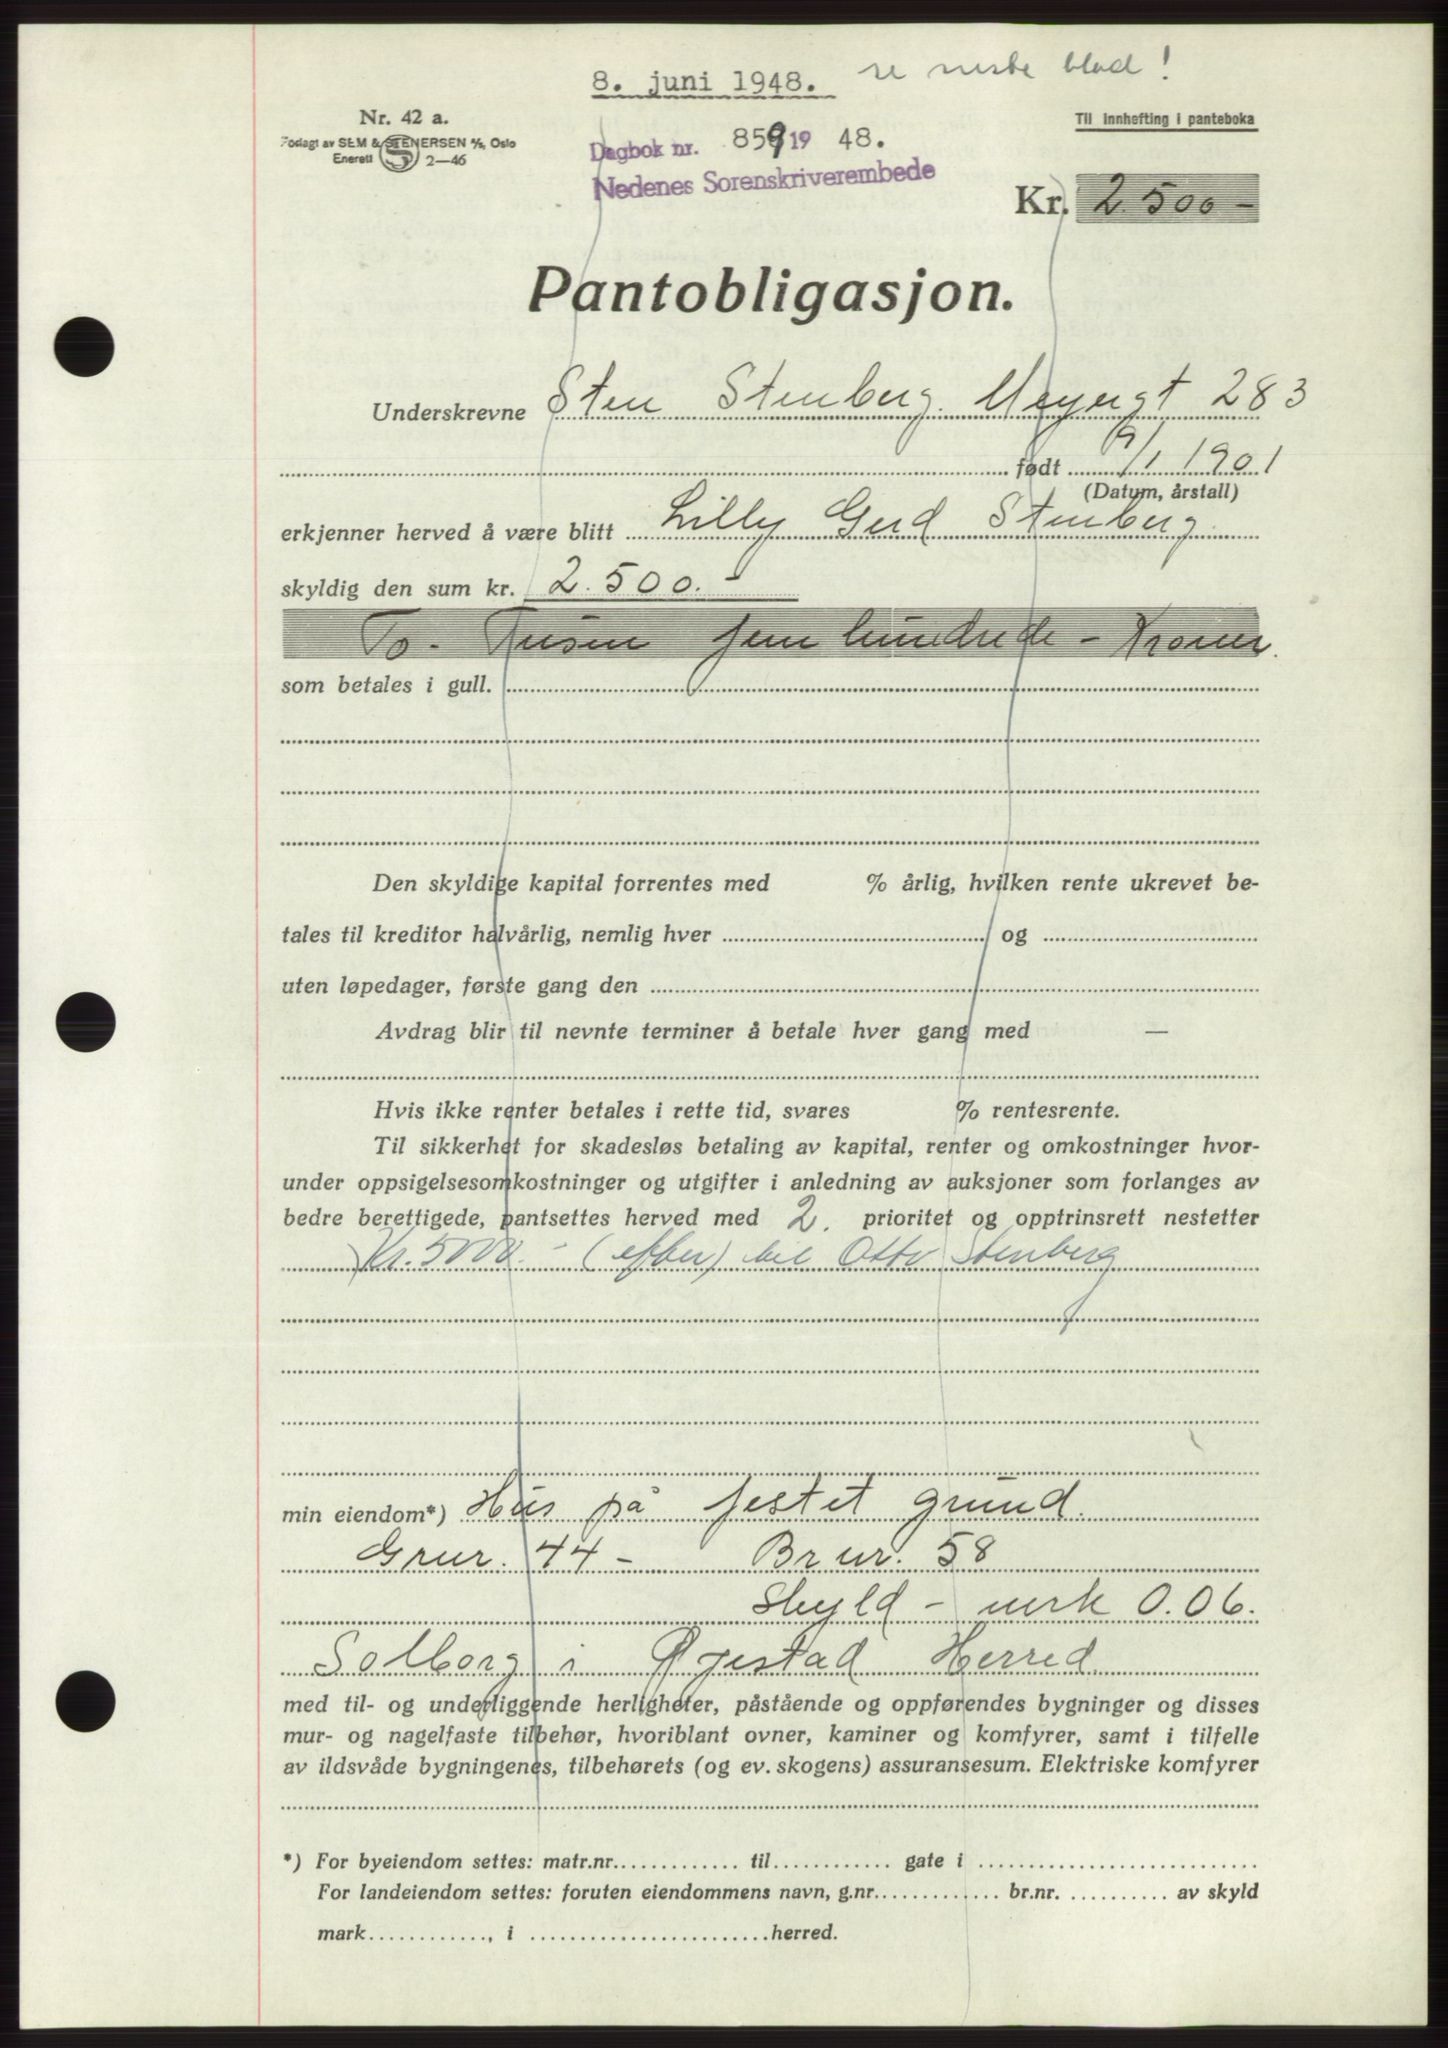 8. juni 1948. se neste blad!
Nr. 42 a.
Forlagt av SEM & STENERSEN A/S, Oslo
Enerett 2—46
Til innhefting i panteboka
Dagbok nr. 859 19 48.
Nedenes Sorenskriverembede
Kr. 2.500 –
Pantobligasjon.
Underskrevne Sten Stenberg. Meyergt 283
født 9/1 1901
(Datum, årstall)
erkjenner herved å være blitt Lilly Gerd Stenberg.
skyldig den sum kr. 2.500.–
To - Tusen fem hundrede – Kroner.
som betales i gull.
Den skyldige kapital forrentes med % årlig, hvilken rente ukrevet be-
tales til kreditor halvårlig, nemlig hver og
uten løpedager, første gang den
Avdrag blir til nevnte terminer å betale hver gang med —
Hvis ikke renter betales i rette tid, svares % rentesrente.
Til sikkerhet for skadesløs betaling av kapital, renter og omkostninger hvor-
under oppsigelsesomkostninger og utgifter i anledning av auksjoner som forlanges av
bedre berettigede, pantsettes herved med 2. prioritet og opptrinsrett nestetter
Kr. 5000.– (efter) til Otto Stenberg
min eiendom*) Hus på festet grund.
Grnr. 44 – Br nr. 58
Skyld – mrk 0.06.
Solborg i Øyestad Herred
med til- og underliggende herligheter, påstående og oppførendes bygninger og disses
mur- og nagelfaste tilbehør, hvoriblant ovner, kaminer og komfyrer, samt i tilfelle
av ildsvåde bygningenes, tilbehørets (og ev. skogens) assuransesum. Elektriske komfyrer
*) For byeiendom settes: matr.nr. til gate i
For landeiendom settes: foruten eiendommens navn, g.nr. br.nr. av skyld
mark , i herred.